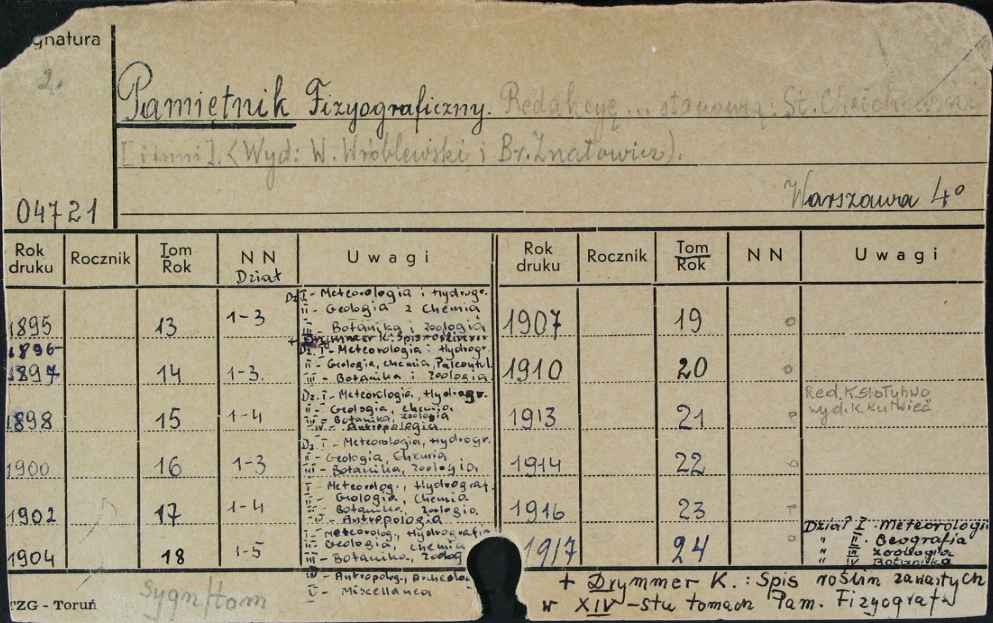 gnatura
2.
Pamiętnik Fizyograficzny. Redakcyę... stanowią: St.
[i inni]. (Wyd: W. Wróblewski i Br. Znatowicz).
Warszawa 4°
04721
Rok druku Rocznik Tom Rok N N Dział Uwagi Rok druku Rocznik Tom Rok N N Uwagi
1895 13 1-3 Dz. I - Meteorologia i Hydrogr.
II - Geologia z Chemią
III - Botanika i zoologia
+ Drymmer K. Spis roślin
1907 19 0
1896-
1897 14 1-3. Dz. I - Meteorologia i Hydrogr.
II - Geologia, chemia, Paleontol.
III - Botanika i zoologia
1910 20 0
1898 15 1-4 Dz. I - Meteorologia, Hydrogr.
II - Geologia, chemia
III - Botanika, zoologia
IV - Antropologia
1913 21 Red. K. Stołyhwo
wyd. K. Kulwieć
1900 16 1-3 Dz. I - Meteorologia, Hydrogr.
II - Geologia, Chemia
III - Botanika, zoologia
1914 22
1902 17 1-4 I - Meteorolog., Hydrograf.
II - Geologia, Chemia
III - Botanika, zoologia
IV - Antropologia
1916 23
1904 18 1-5 I - Meteorolog, Hydrografia
II - Geologia chemia
III - Botanika, zoolog
IV - Antropolog.,
V - Miscellanea
1917 24 Dział I. Meteorologi
" II. Geografia
" III. zoologia
" IV. Botanika
+ Drymmer K.: Spis roślin zawartych
w XIV-stu tomach Pam. Fizyograf.
Sygn/tom
TZG - Toruń